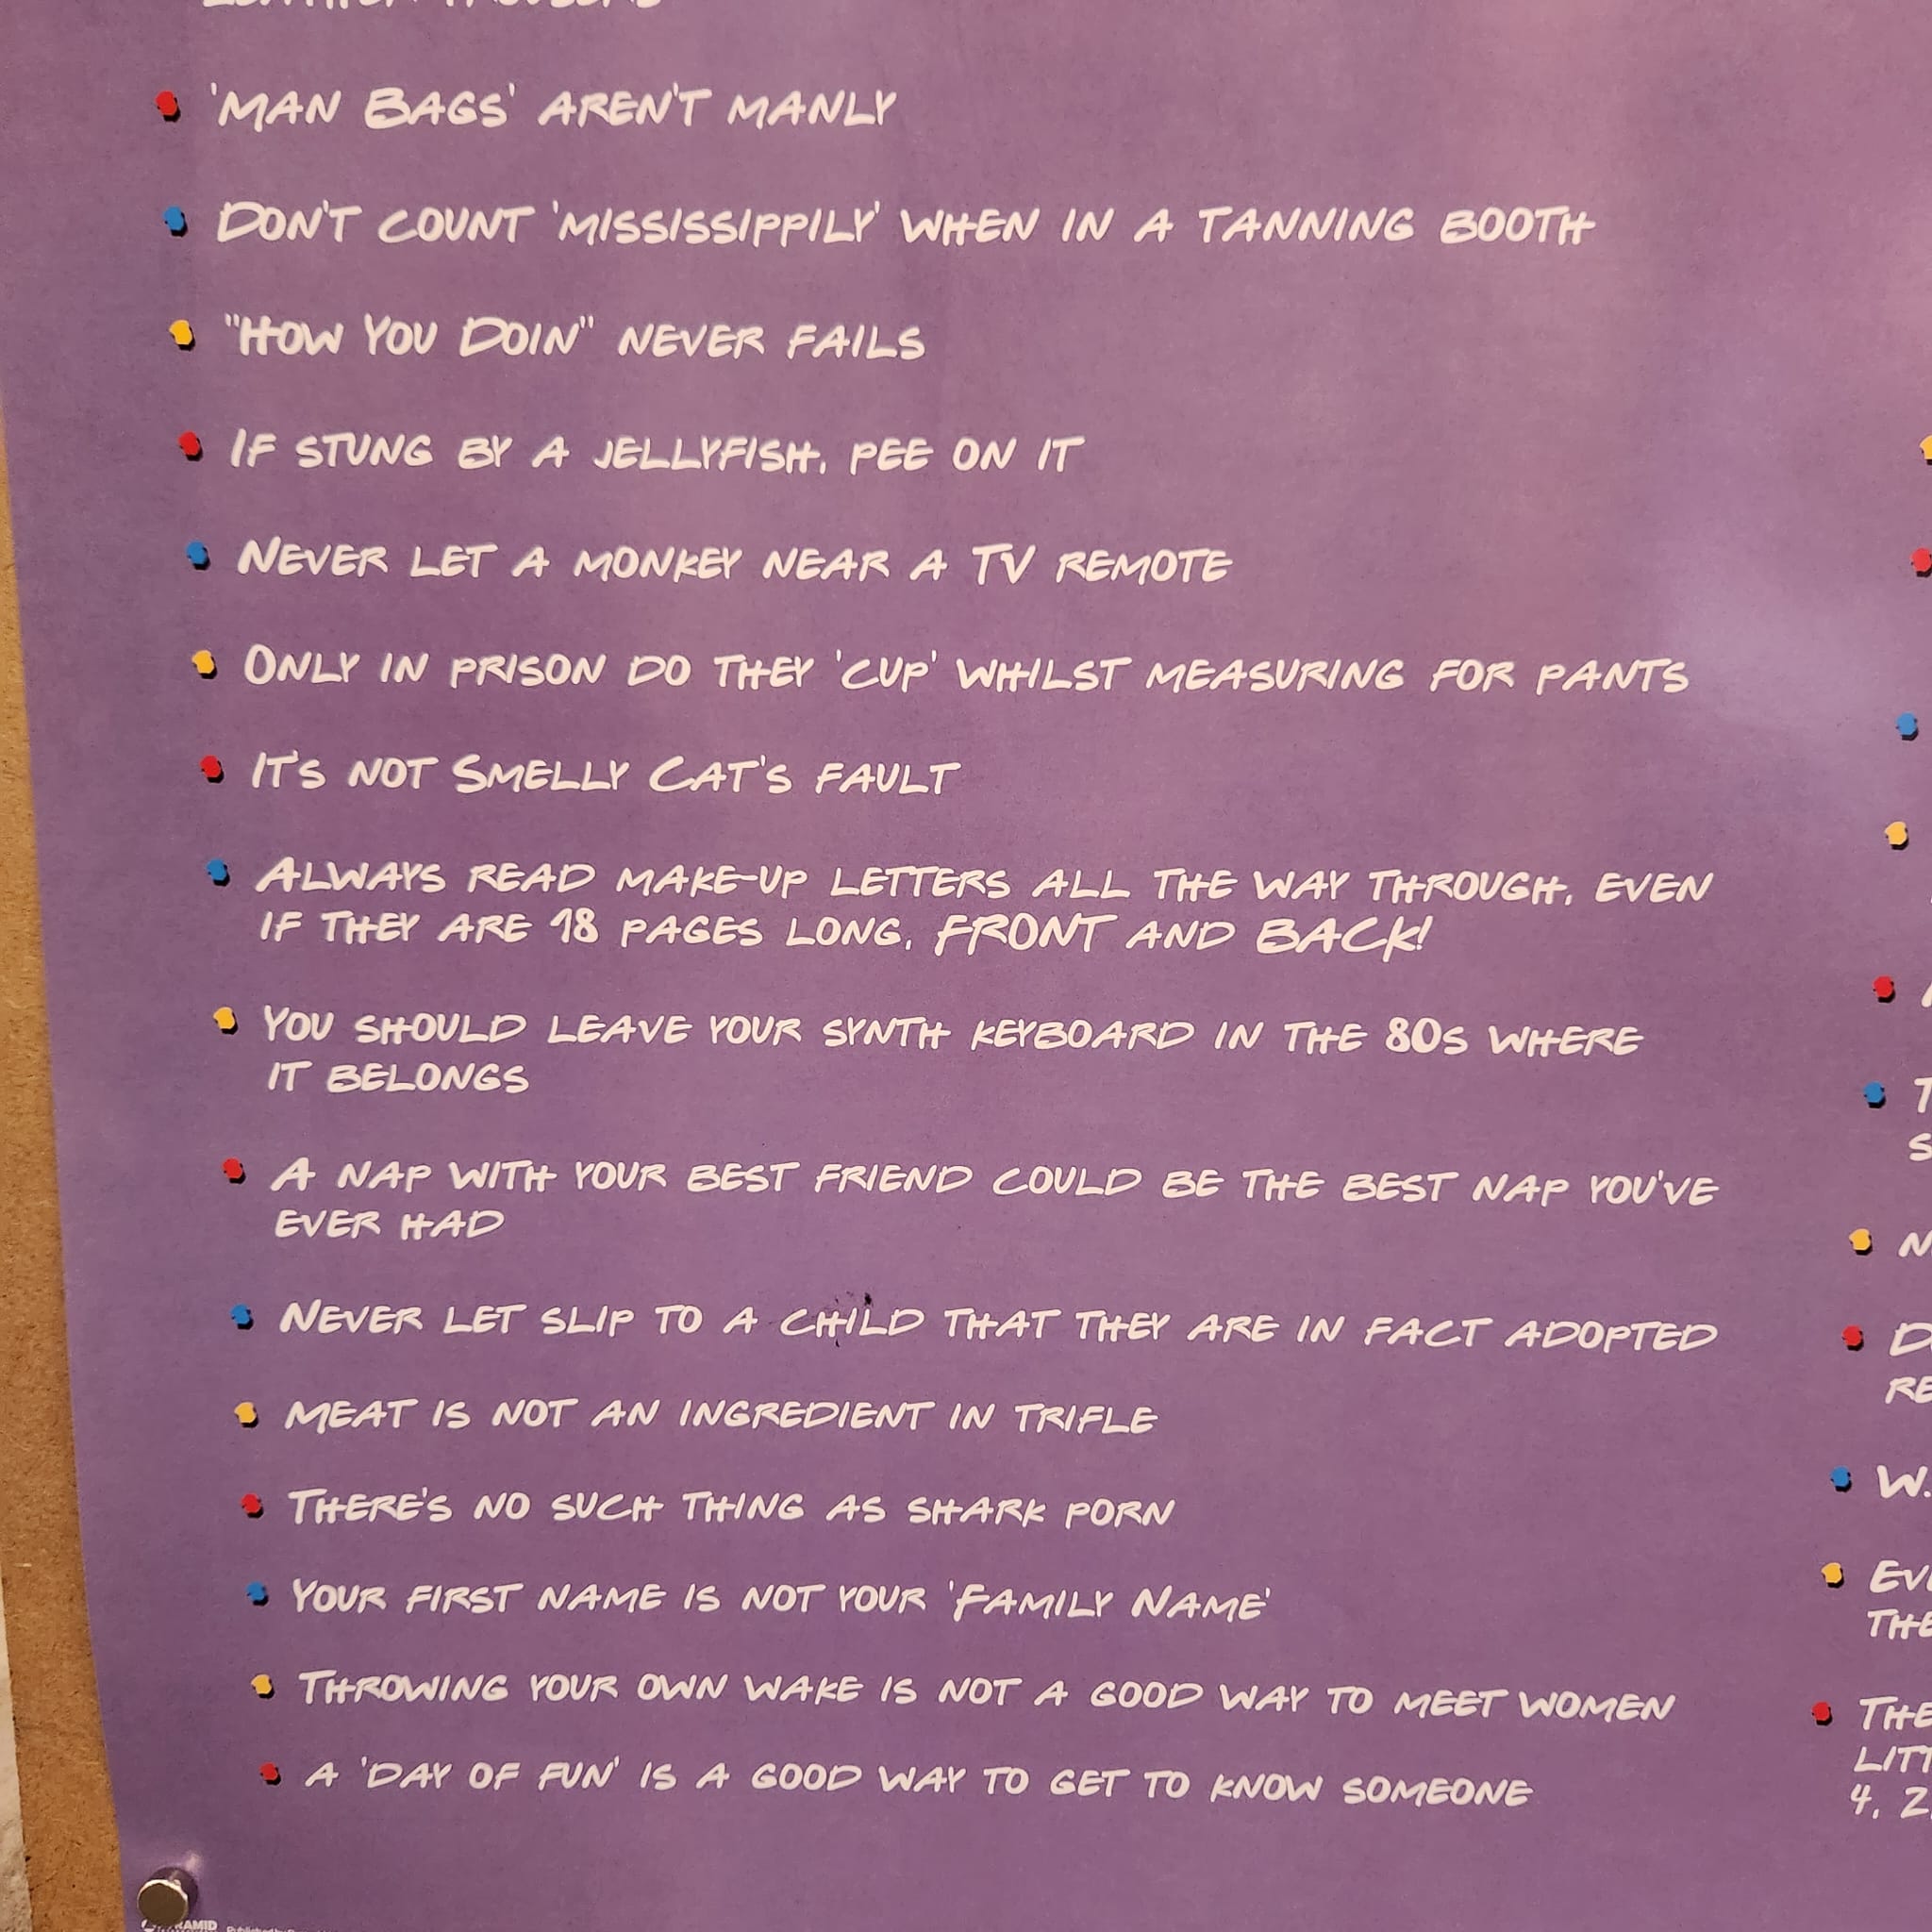 'MAN BAGS' AREN'T MANLY
DON'T COUNT 'MISSISSIPPILY' WHEN IN A TANNING BOOTH
"HOW YOU DOIN" NEVER FAILS
IF STUNG BY A JELLYFISH, PEE ON IT
NEVER LET A MONKEY NEAR A TV REMOTE
ONLY IN PRISON DO THEY 'CUP' WHILST MEASURING FOR PANTS
IT'S NOT SMELLY CAT'S FAULT
ALWAYS READ MAKE-UP LETTERS ALL THE WAY THROUGH, EVEN
IF THEY ARE 18 PAGES LONG, FRONT AND BACK!
YOU SHOULD LEAVE YOUR SYNTH KEYBOARD IN THE 80s WHERE
IT BELONGS
A NAP WITH YOUR BEST FRIEND COULD BE THE BEST NAP YOU'VE
EVER HAD
NEVER LET SLIP TO A CHILD THAT THEY ARE IN FACT ADOPTED
MEAT IS NOT AN INGREDIENT IN TRIFLE
THERE'S NO SUCH THING AS SHARK PORN
YOUR FIRST NAME IS NOT YOUR 'FAMILY NAME'
THROWING YOUR OWN WAKE IS NOT A GOOD WAY TO MEET WOMEN
A 'DAY OF FUN' IS A GOOD WAY TO GET TO KNOW SOMEONE
4, 2